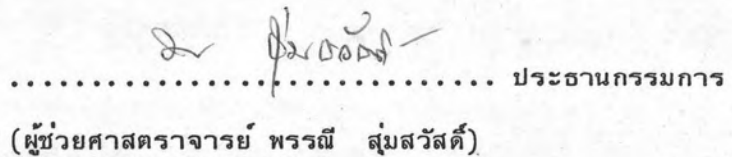 ................................ ประธานกรรมการ
(ผู้ช่วยศาสตราจารย์ พรรณี สุ่มสวัสดิ์)